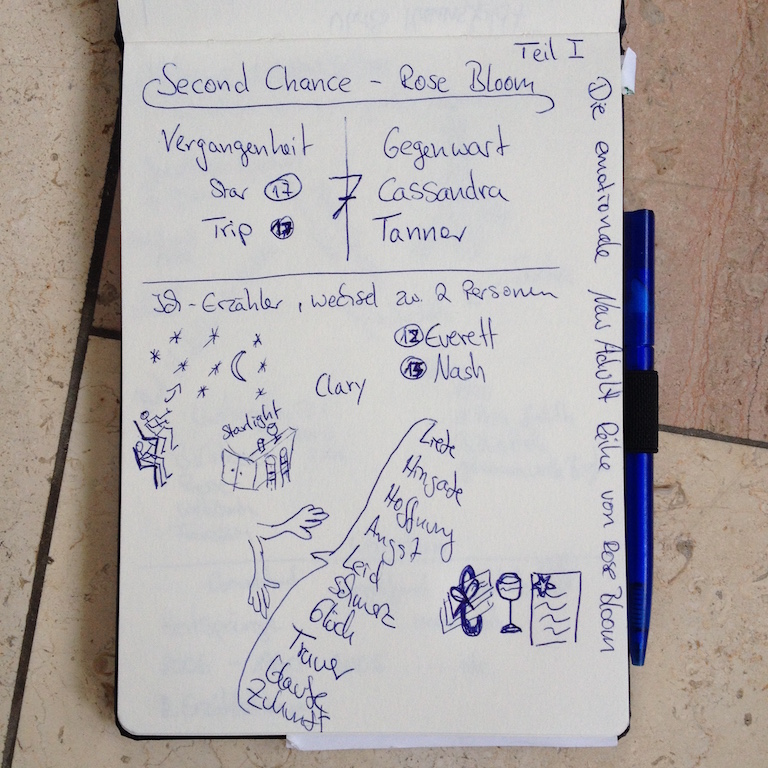 Teil I
Second Chance - Rose Bloom
Vergangenheit
Star 17
Trip
7
Gegenwart
Cassandra
Tanner
Ich-Erzähler, wechsel zw. 2 Personen
12 Everett
13 Nash
Clary
Starlight
Liebe
Hingabe
Hoffnung
Angst
Leid
Schmerz
Glück
Trauer
Glaube
Zukunft
Die emotionale New Adult Reihe von Rose Bloom